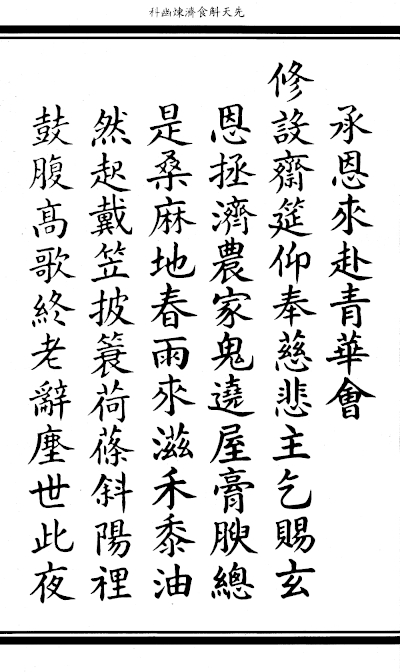 先天斛食濟煉幽科
承恩來赴青華會
修設齋筵仰奉慈悲主乞賜玄
恩拯濟農家鬼遶屋膏腴總
是桑麻地春雨來滋禾黍油
然起戴笠披簑荷蓧斜陽裡
鼓腹高歌終老辭塵世此夜